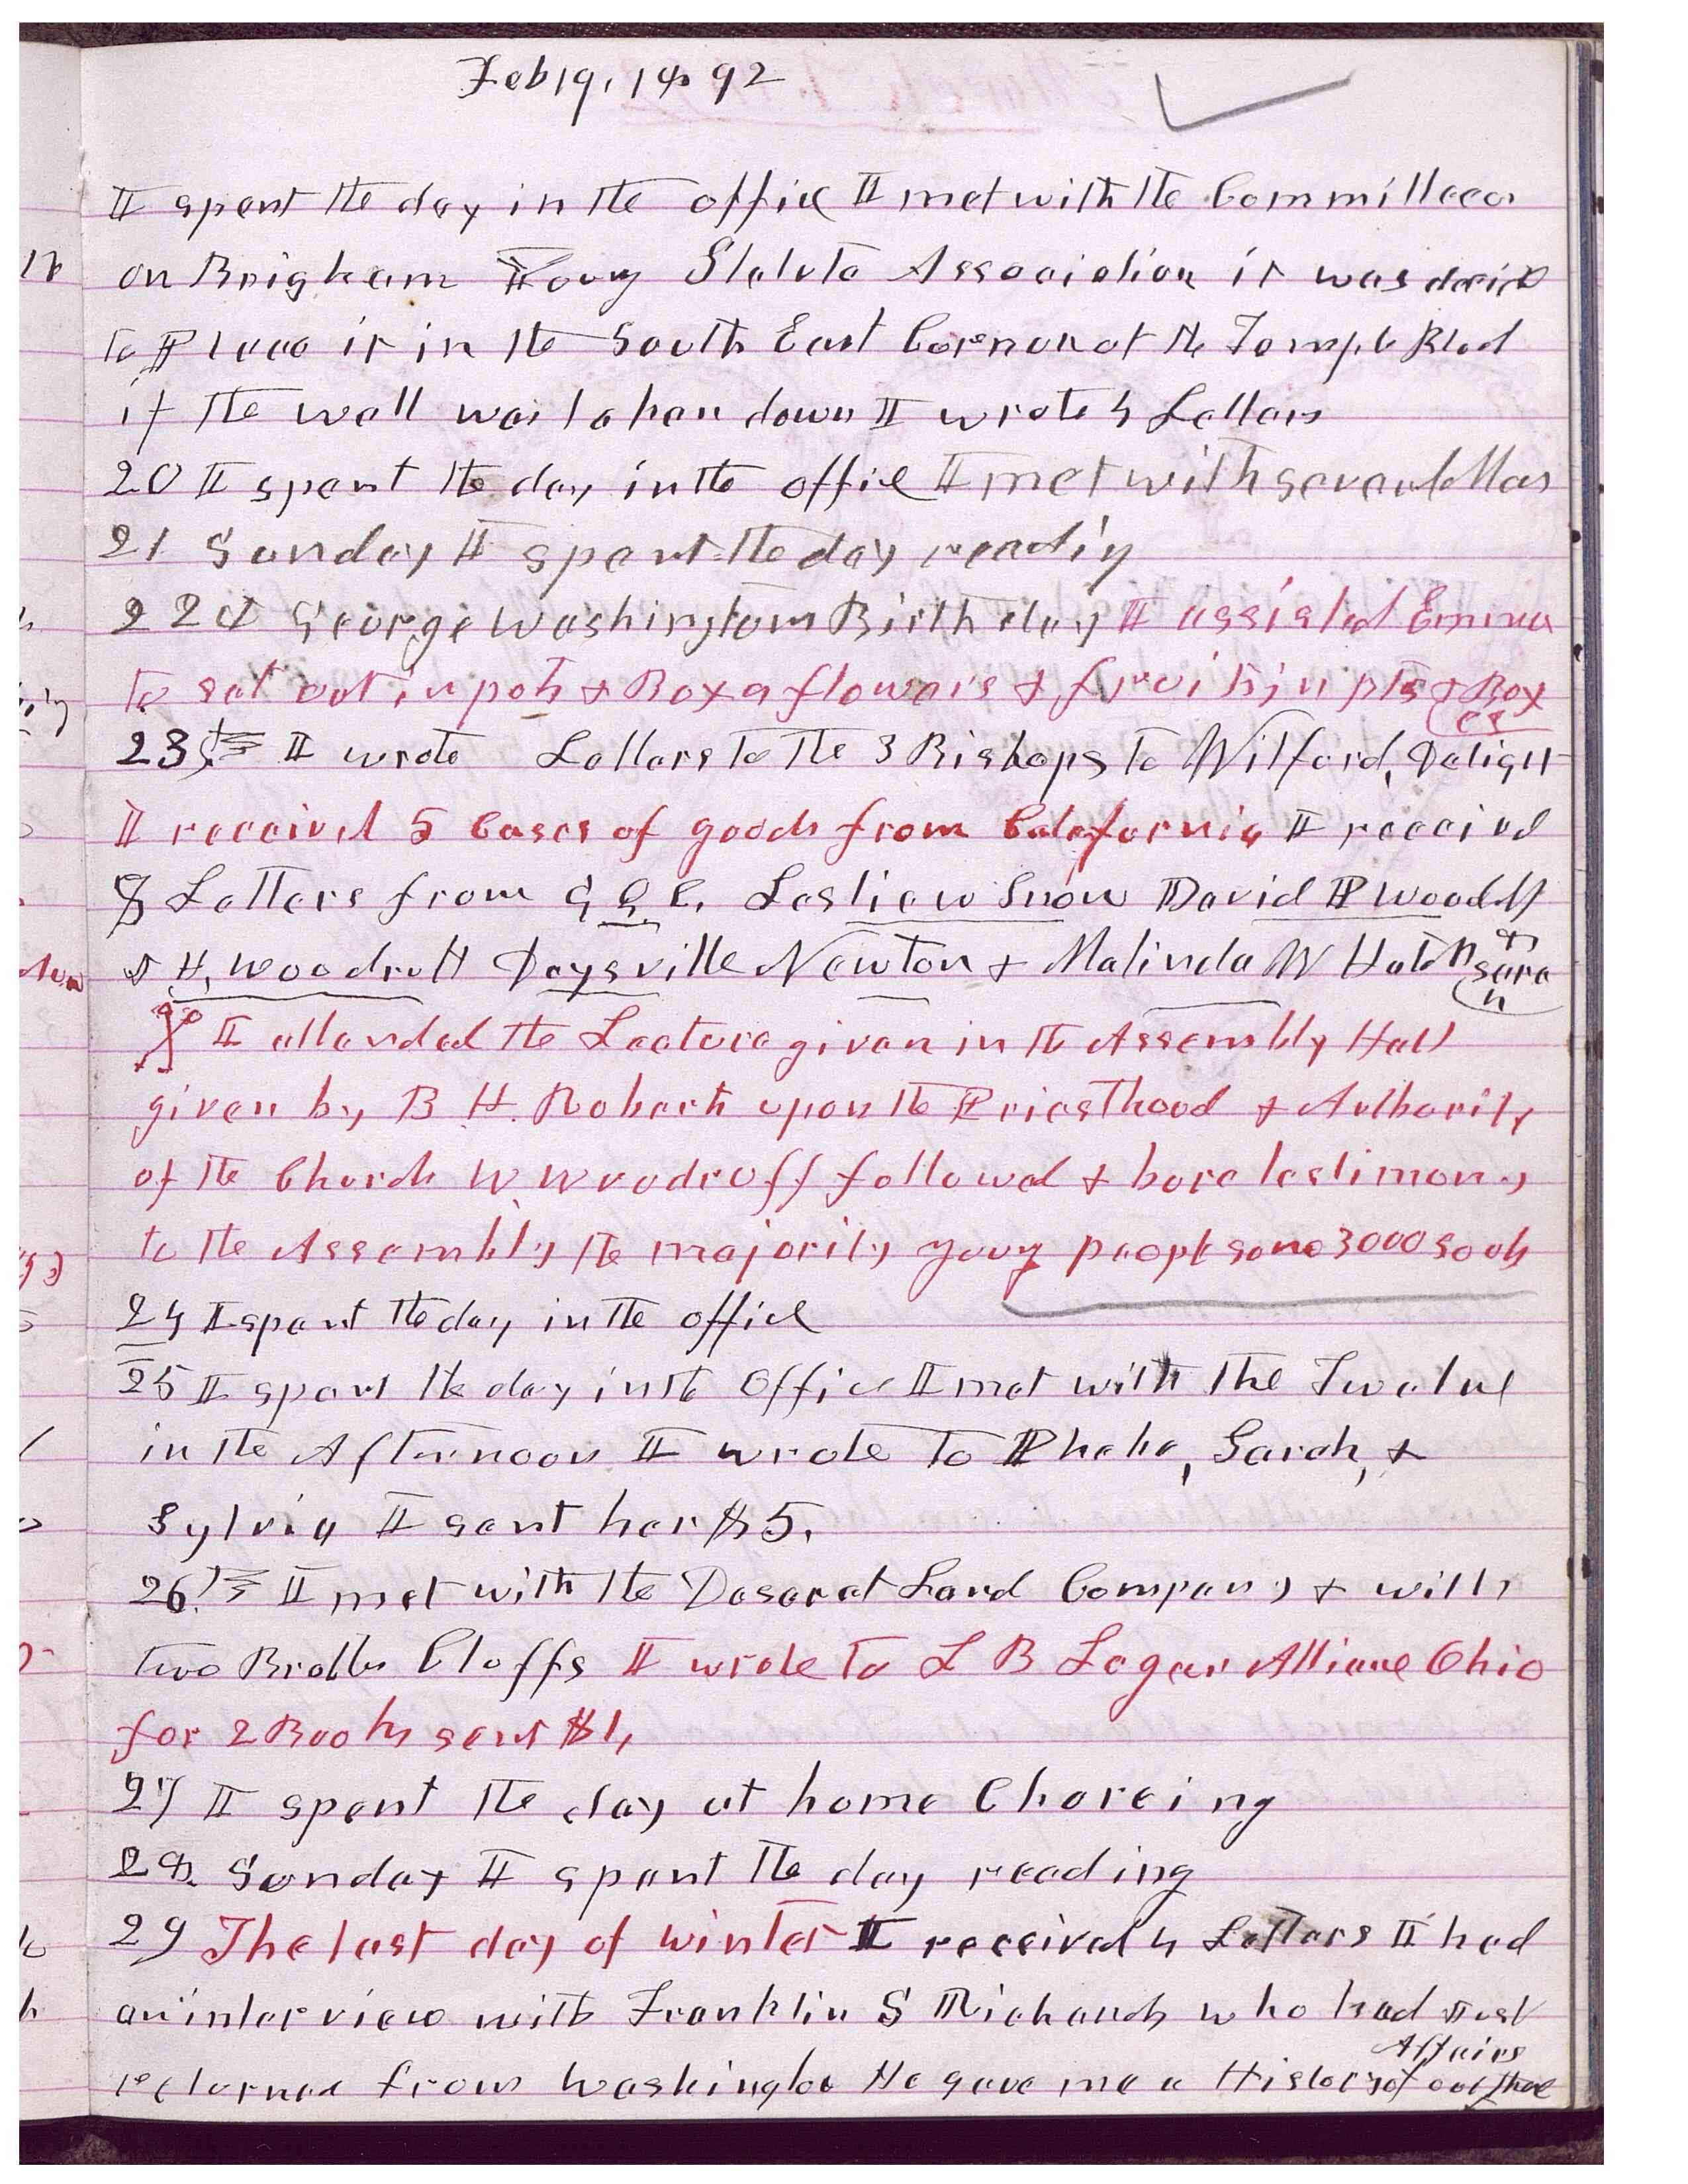 Feb 19, 1892
I spent the day in the office I met with the Committee
on Brigham Young Statute Association it was decid
to Place it in the South East Cornor of the Temple Block
if the wall was taken down I wrote 4 Letters
20 I spent the day in the office I met with several Men
21 Sunday I spent the day reading
22d George Washington Birth day I assisted Emma
to set out in pots & Boxs flowers & fruits in pts & Box
es
23d I wrote Letters to the 3 Bishops to Wilford, Delight
I received 5 Cases of goods from California I receivd
8 Letters from G Q C, Leslie W Snow David P Woodruff
J H, Woodruff Daysville Newton & Malinda W Hatch &
Sara
h
I attended the Lecture given in the Assembly Hall
given by B H. Roberts upon the Priesthood & Authority
of the Church W Woodruff followed & bore testimony
to the Assembly the majority young people some 3000 souls
24 I spent the day in the office
25 I spent the day in the Office I met with the Twelve
in the Afternoon I wrote to Phebe, Sarah, &
Sylvia I sent her $5.
26 I met with the Deseret Land Company & with
two Brother Cluffs I wrote to L B Logan Alliance Ohio
for 2 Books sent $1,
27 I spent the day at home Choreing
28. Sunday I spent the day reading
29 The last day of winter I received 4 Letters I had
an interview with Franklin S Richards who had Just
Affairs
returned from Washington He gave me a History of our